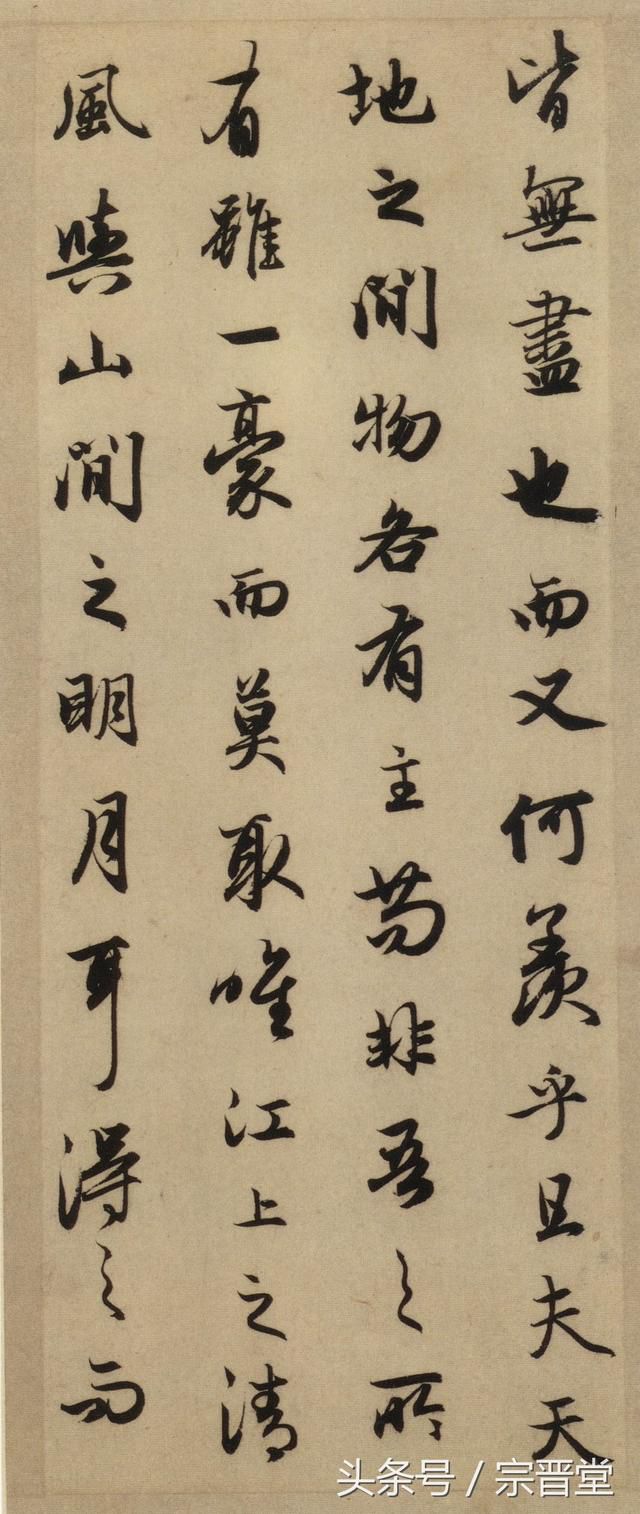 皆無盡也而又何羨乎且夫天
地之間物各有主苟非吾之所
有雖一豪而莫取唯江上之清
風與山間之明月耳得之而
头条号 / 宗晋堂